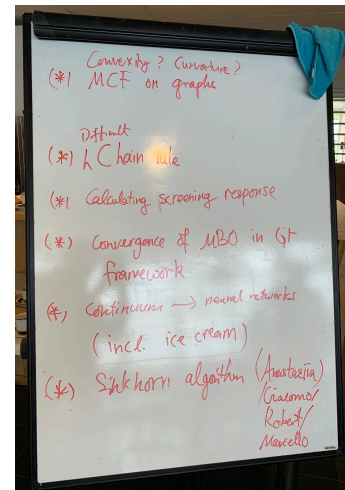 Convexity? Curvature?
(*) MCF on graphs
Difficult
(*) Chain rule
(*) Calculating screening response
(*) Convergence of MBO in GF
framework
(*) Continuum → neural networks
(incl. ice cream)
(*) Sinkhorn algorithm (Anastasiia/
Giacomo/
Robert/
Marcello